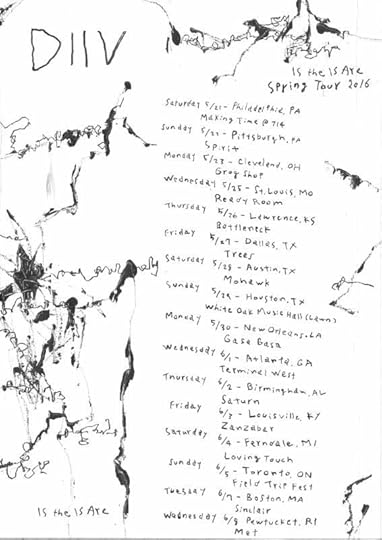 DIIV
Is the Is Are
Spring Tour 2016
Saturday 5/21 - Philadelphia, PA
Making Time @ 714
Sunday 5/22 - Pittsburgh, PA
Spirit
Monday 5/23 - Cleveland, OH
Grog Shop
Wednesday 5/25 - St. Louis, MO
Ready Room
Thursday 5/26 - Lawrence, KS
Bottleneck
Friday 5/27 - Dallas, TX
Trees
Saturday 5/28 - Austin, TX
Mohawk
Sunday 5/29 - Houston, TX
White Oak Music Hall (Lawn)
Monday 5/30 - New Orleans, LA
Gasa Gasa
Wednesday 6/1 - Atlanta, GA
Terminal West
Thursday 6/2 - Birmingham, AL
Saturn
Friday 6/3 - Louisville, KY
Zanzabar
Saturday 6/4 - Ferndale, MI
Loving Touch
Sunday 6/5 - Toronto, ON
Field Trip Fest
Tuesday 6/7 - Boston, MA
Sinclair
Wednesday 6/8 Pawtucket, RI
Met
Is the Is Are